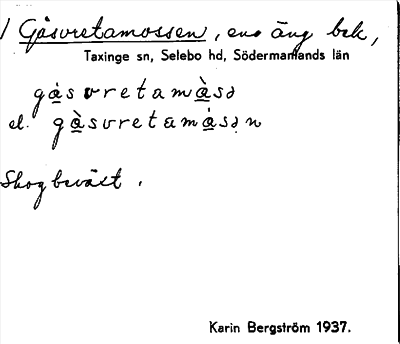 / Gåsvretamossen, ens äng bek,
Taxinge sn, Selebo hd, Södermanlands län
gȧsvretamàsə
el. gàsvretamȧsən
Skogbeväxt.
Karin Bergström 1937.